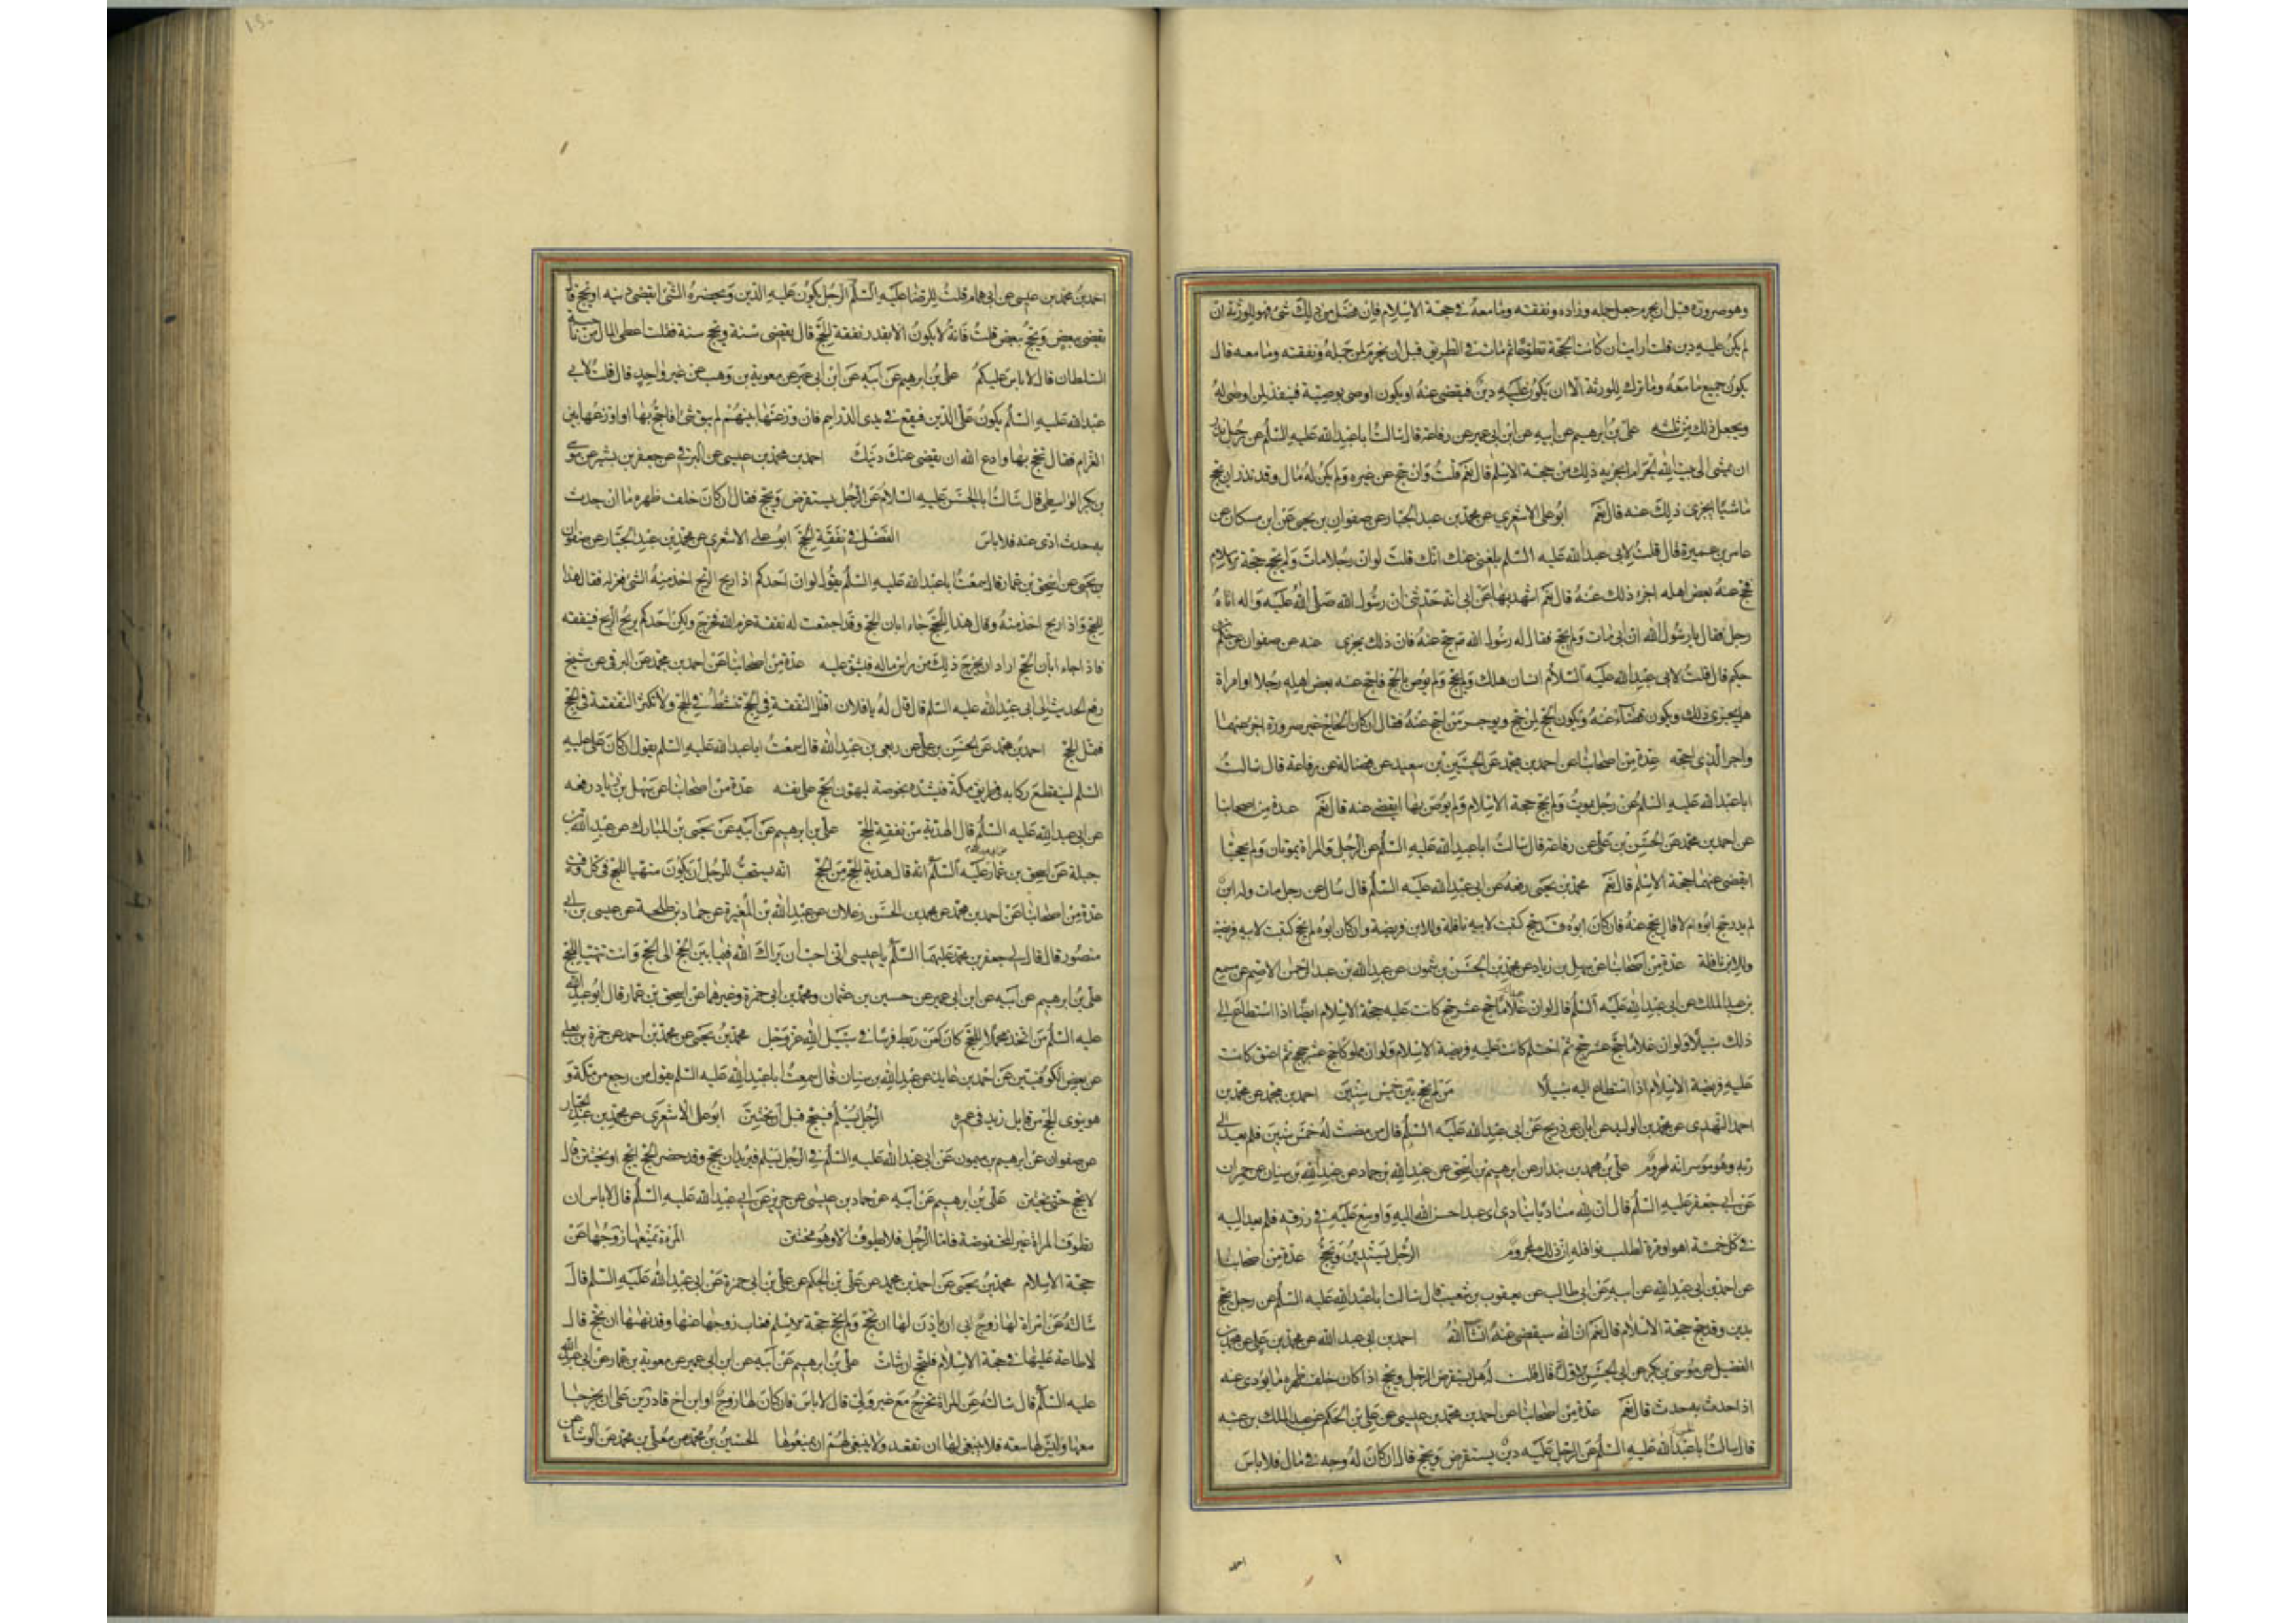 وهو صرورة قبل ان يحرم جعل جمله وزاده ونفقته وما معه في حجة الاسلام فان فضل من ذلك شئ فهو للورثة ان
لم يكن عليه دين قلت ارايت ان كانت الحجة تطوعا ثم مات في الطريق قبل ان يحرم لمن جمله ونفقته وما معه قال
يكون جميع ما معه وما ترك للورثة الا ان يكون عليه دين فيقضى عنه او يكون اوصى بوصية فينفذ لمن اوصى له
ويجعل ذلك من ثلثه علي بن ابرهيم عن ابيه عن ابن ابي عمير عن رفاعة قال سالت ابا عبد الله عليه السلم عن رجل نذر
ان يمشي الى بيت الله الحرام ايجزيه ذلك من حجة الاسلم قال نعم قلت وان حج عن غيره ولم يكن له مال وقد نذر ان يحج
ماشيا ايجزي ذلك عنه قال نعم ابو علي الاشعري عن محمد بن عبد الجبار عن صفوان بن يحيى عن ابن مسكان عن
عامر بن عميرة قال قلت لابي عبد الله عليه السلم بلغني عنك انك قلت لو ان رجلا مات ولم يحج حجة الاسلام
فحج عنه بعض اهله اجزء ذلك عنه قال نعم اشهد بها عن ابي انه حدثني ان رسول الله صلى الله عليه واله اتاه
رجل فقال يا رسول الله ان ابي مات ولم يحج فقال له رسول الله حج عنه فان ذلك يجزي عنه عن صفوان عن حكم بن
حكيم قال قلت لابي عبد الله عليه السلام انسان هلك ولم يحج ولم يوص بالحج فاحج عنه بعض اهله رجلا او امراة
هل يجزي ذلك ويكون قضاء عنه ويكون الحج لمن حج ويوجر من احج عنه فقال ان كان الحاج غير صرورة اجزء عنهما
واجر الذي احجه عدة من اصحابنا عن احمد بن محمد عن الحسين بن سعيد عن فضالة عن رفاعة قال سالت
ابا عبد الله عليه السلم عن رجل يموت ولم يحج حجة الاسلام ولم يوص بها ايقضى عنه قال نعم عدة من اصحابنا
عن احمد بن محمد عن الحسن بن علي عن رفاعة قال سالت ابا عبد الله عليه السلم عن الرجل والمراة يموتان ولم يحجا
ايقضى عنهما حجة الاسلم قال نعم محمد بن يحيى رفعه عن ابي عبد الله عليه السلم قال سال عن رجل مات وله ابن
لم يدر حج ابوه ام لا قال يحج عنه فان كان ابوه قد حج كتبت لابيه نافلة وللابن فريضة وان كان ابوه لم يحج كتبت لابيه فريضة
وللابن نافلة عدة من اصحابنا عن سهل بن زياد عن محمد بن الحسن بن شمون عن عبد الله بن عبد الرحمن الاصم عن مسمع
بن عبد الملك عن ابي عبد الله عليه السلم قال لو ان غلاما حج عشر حج كانت عليه حجة الاسلام ايضا اذا استطاع الى
ذلك سبيلا ولو ان غلاما حج عشر حج ثم احتلم كانت عليه فريضة الاسلام ولو ان مملوكا حج عشر حج ثم اعتق كانت
عليه فريضة الاسلام اذا استطاع اليه سبيلا من لم يحج بين خمس سنين احمد بن محمد عن محمد بن
احمد النهدي عن محمد بن الوليد عن ابان عن ذريح عن ابي عبد الله عليه السلم قال من مضت له خمس سنين فلم يفد الى
ربه وهو موسر انه لمحروم علي بن محمد بن بندار عن ابرهيم بن اسحق عن عبد الله بن حماد عن عبد الله بن سنان عن حمران
عن ابي جعفر عليه السلم قال ان لله مناديا ينادي اي عبد احسن الله اليه واوسع عليه في رزقه فلم يفد اليه
في كل خمسة اعوام مرة لطلب نوافله ان ذلك لمحروم الرجل يستدين ويحج عدة من اصحابنا
عن احمد بن ابي عبد الله عن ابيه عن ابي طالب عن يعقوب بن شعيب قال سالت ابا عبد الله عليه السلم عن رجل يحج
بدين وقد حج حجة الاسلام قال نعم ان الله سيقضي عنه انشا الله احمد بن ابي عبد الله عن محمد بن علي عن محمد بن
الفضيل عن موسى بن بكر عن ابي الحسن الاول قال قلت له هل يستقرض الرجل ويحج اذا كان خلف ظهره ما يودى عنه
اذا حدث به حدث قال نعم عدة من اصحابنا عن احمد بن محمد بن عيسى عن علي بن الحكم عن عبد الملك بن عتبة
قال سالت ابا عبد الله عليه السلم عن الرجل عليه دين يستقرض ويحج قال ان كان له وجه في مال فلا باس
احمد بن محمد بن عيسى عن ابي همام قلت للرضا عليه السلم الرجل يكون عليه الدين ويحضره الشئ ايقضي دينه او يحج قال
يقضي ببعض ويحج ببعض قلت فانه لا يكون الا بقدر نفقة الحج قال يقضي سنة ويحج سنة فقلت اعطي المال من ناحية
السلطان قال لا باس عليكم علي بن ابرهيم عن ابيه عن ابن ابي عمير عن معوية بن وهب عن غير واحد قال قلت لابي
عبد الله عليه السلم يكون علي الدين فيقع في يدي الدراهم فان وزعتها بينهم لم يبق شئ افاحج بها او اوزعها بين
الغرام فقال تحج بها وادع الله ان يقضي عنك دينك احمد بن محمد بن عيسى عن البرقي عن جعفر بن بشير عن موسى
بن بكر الواسطي قال سالت ابا الحسن عليه السلام عن الرجل يستقرض ويحج فقال ان كان خلف ظهره ما ان حدث
به حدث ادي عنه فلا باس الفضل في نفقة الحج ابو علي الاشعري عن محمد بن عبد الجبار عن صفوان
بن يحيى عن اسحق بن عمار قال سمعت ابا عبد الله عليه السلم يقول لو ان احدكم اذا ربح الربح اخذ منه الشئ فعزله فقال هذا
للحج واذا ربح اخذ منه وقال هذا للحج جاء ابان الحج وقد اجتمعت له نفقة عزم الله فخرج ولكن احدكم يربح الربح فينفقه
فاذا جاء ابان الحج اراد ان يخرج ذلك من راس ماله فيشق عليه عدة من اصحابنا عن احمد بن محمد عن البرقي عن شيخ
رفع الحديث الى ابي عبد الله عليه السلم قال قال له يا فلان اقلل النفقة في الحج تنشط في الحج ولا تكثر النفقة في الحج
فتمل الحج احمد بن محمد عن الحسن بن علي عن ربعي بن عبد الله قال سمعت ابا عبد الله عليه السلم يقول ان كان علي عليه
السلم لينقطع ركابه في طريق مكة فيشده بخوصة ليهون الحج على نفسه عدة من اصحابنا عن سهل بن زياد رفعه
عن ابي عبد الله عليه السلم قال الهدية من نفقة الحج علي بن ابرهيم عن ابيه عن يحيى بن المبارك عن عبد الله بن
جبلة عن اسحق بن عمار عليه السلم انه قال هدية الحج من الحج انه يستحب للرجل ان يكون متهيا للحج في كل وقت
عدة من اصحابنا عن احمد بن محمد عن محمد بن الحسن زعلان عن عبد الله بن المغيرة عن حماد بن طلحة عن عيسى بن ابي
منصور قال قال لي جعفر بن محمد عليهما السلم يا عيسى اني احب ان يراك الله فيما بين الحج الى الحج وانت تتهيا للحج
علي بن ابرهيم عن ابيه عن ابن ابي عمير عن حسين بن عثمان ومحمد بن ابي حمزة وغيرهما عن اسحق بن عمار قال ابو عبد الله
عليه السلم من اتخذ محملا للحج كان كمن ربط فرسا في سبيل الله عز وجل محمد بن يحيى عن محمد بن احمد عن حمزة بن يعلى
عن بعض الكوفيين عن احمد بن عايذ عن عبد الله بن سنان قال سمعت ابا عبد الله عليه السلم يقول من رجع من مكة و
هو ينوي الحج من قابل زيد في عمره الرجل يسلم فيحج قبل ان يختتن ابو علي الاشعري عن محمد بن عبد الجبار
عن صفوان عن ابرهيم بن ميمون عن ابي عبد الله عليه السلم في الرجل يسلم فيريد ان يحج وقد حضر الحج ايحج او يختتن قال
لا يحج حتى يختتن علي بن ابرهيم عن ابيه عن حماد بن عيسى عن حريز عن ابي عبد الله عليه السلم قال لا باس ان
تطوف المراة غير المخفوضة فاما الرجل فلا يطوف الا وهو مختتن المرءة تمنعها زوجها عن
حجة الاسلام محمد بن يحيى عن احمد بن محمد عن علي بن الحكم عن علي بن ابي حمزة عن ابي عبد الله عليه السلم قال
سالته عن امراة لها زوج ابى ان ياذن لها ان تحج ولم تحج حجة الاسلم فغاب زوجها عنها وقد نهاها ان تحج قال
لا طاعة عليها في حجة الاسلام فلتحج ان شات علي بن ابرهيم عن ابيه عن ابن ابي عمير عن معوية بن عمار عن ابي عبد الله
عليه السلم قال سالته عن المراة تخرج مع غير ولي قال لا باس فان كان لها زوج او ابن اخ قادرين على ان يخرجا
معها وليس لها سعة فلا ينبغي لها ان تقعد ولا ينبغي لهم ان يمنعوها الحسين بن محمد عن معلى بن محمد عن الوشاء عن
احمد